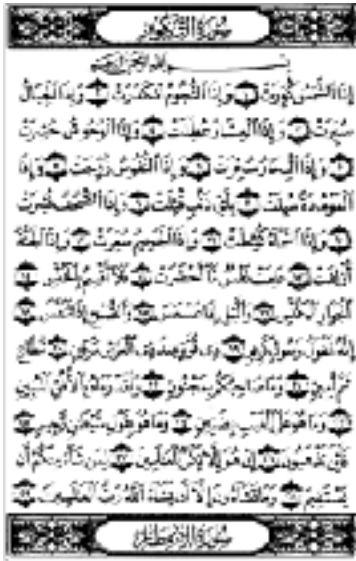 سُورَةُ التَّكْوِيرِ
بِسْمِ اللَّهِ الرَّحْمَٰنِ الرَّحِيمِ
إِذَا الشَّمْسُ كُوِّرَتْ ١ وَإِذَا النُّجُومُ انكَدَرَتْ ٢ وَإِذَا الْجِبَالُ
سُيِّرَتْ ٣ وَإِذَا الْعِشَارُ عُطِّلَتْ ٤ وَإِذَا الْوُحُوشُ حُشِرَتْ
٥ وَإِذَا الْبِحَارُ سُجِّرَتْ ٦ وَإِذَا النُّفُوسُ زُوِّجَتْ ٧ وَإِذَا
الْمَوْءُودَةُ سُئِلَتْ ٨ بِأَيِّ ذَنبٍ قُتِلَتْ ٩ وَإِذَا الصُّحُفُ نُشِرَتْ
١٠ وَإِذَا السَّمَاءُ كُشِطَتْ ١١ وَإِذَا الْجَحِيمُ سُعِّرَتْ ١٢ وَإِذَا الْجَنَّةُ
أُزْلِفَتْ ١٣ عَلِمَتْ نَفْسٌ مَّا أَحْضَرَتْ ١٤ فَلَا أُقْسِمُ بِالْخُنَّسِ ١٥
الْجَوَارِ الْكُنَّسِ ١٦ وَاللَّيْلِ إِذَا عَسْعَسَ ١٧ وَالصُّبْحِ إِذَا تَنَفَّسَ ١٨
إِنَّهُ لَقَوْلُ رَسُولٍ كَرِيمٍ ١٩ ذِي قُوَّةٍ عِندَ ذِي الْعَرْشِ مَكِينٍ ٢٠ مُّطَاعٍ
ثَمَّ أَمِينٍ ٢١ وَمَا صَاحِبُكُم بِمَجْنُونٍ ٢٢ وَلَقَدْ رَآهُ بِالْأُفُقِ الْمُبِينِ
٢٣ وَمَا هُوَ عَلَى الْغَيْبِ بِضَنِينٍ ٢٤ وَمَا هُوَ بِقَوْلِ شَيْطَانٍ رَّجِيمٍ ٢٥
فَأَيْنَ تَذْهَبُونَ ٢٦ إِنْ هُوَ إِلَّا ذِكْرٌ لِّلْعَالَمِينَ ٢٧ لِمَن شَاءَ مِنكُمْ أَن
يَسْتَقِيمَ ٢٨ وَمَا تَشَاءُونَ إِلَّا أَن يَشَاءَ اللَّهُ رَبُّ الْعَالَمِينَ ٢٩
سُورَةُ الِانفِطَارِ